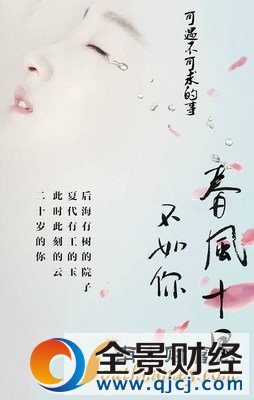 可遇不可求的事
春風十里
不如你
后海有树的院子
夏代有工的玉
此时此刻的云
二十岁的你
全景财经
www.qjcj.com